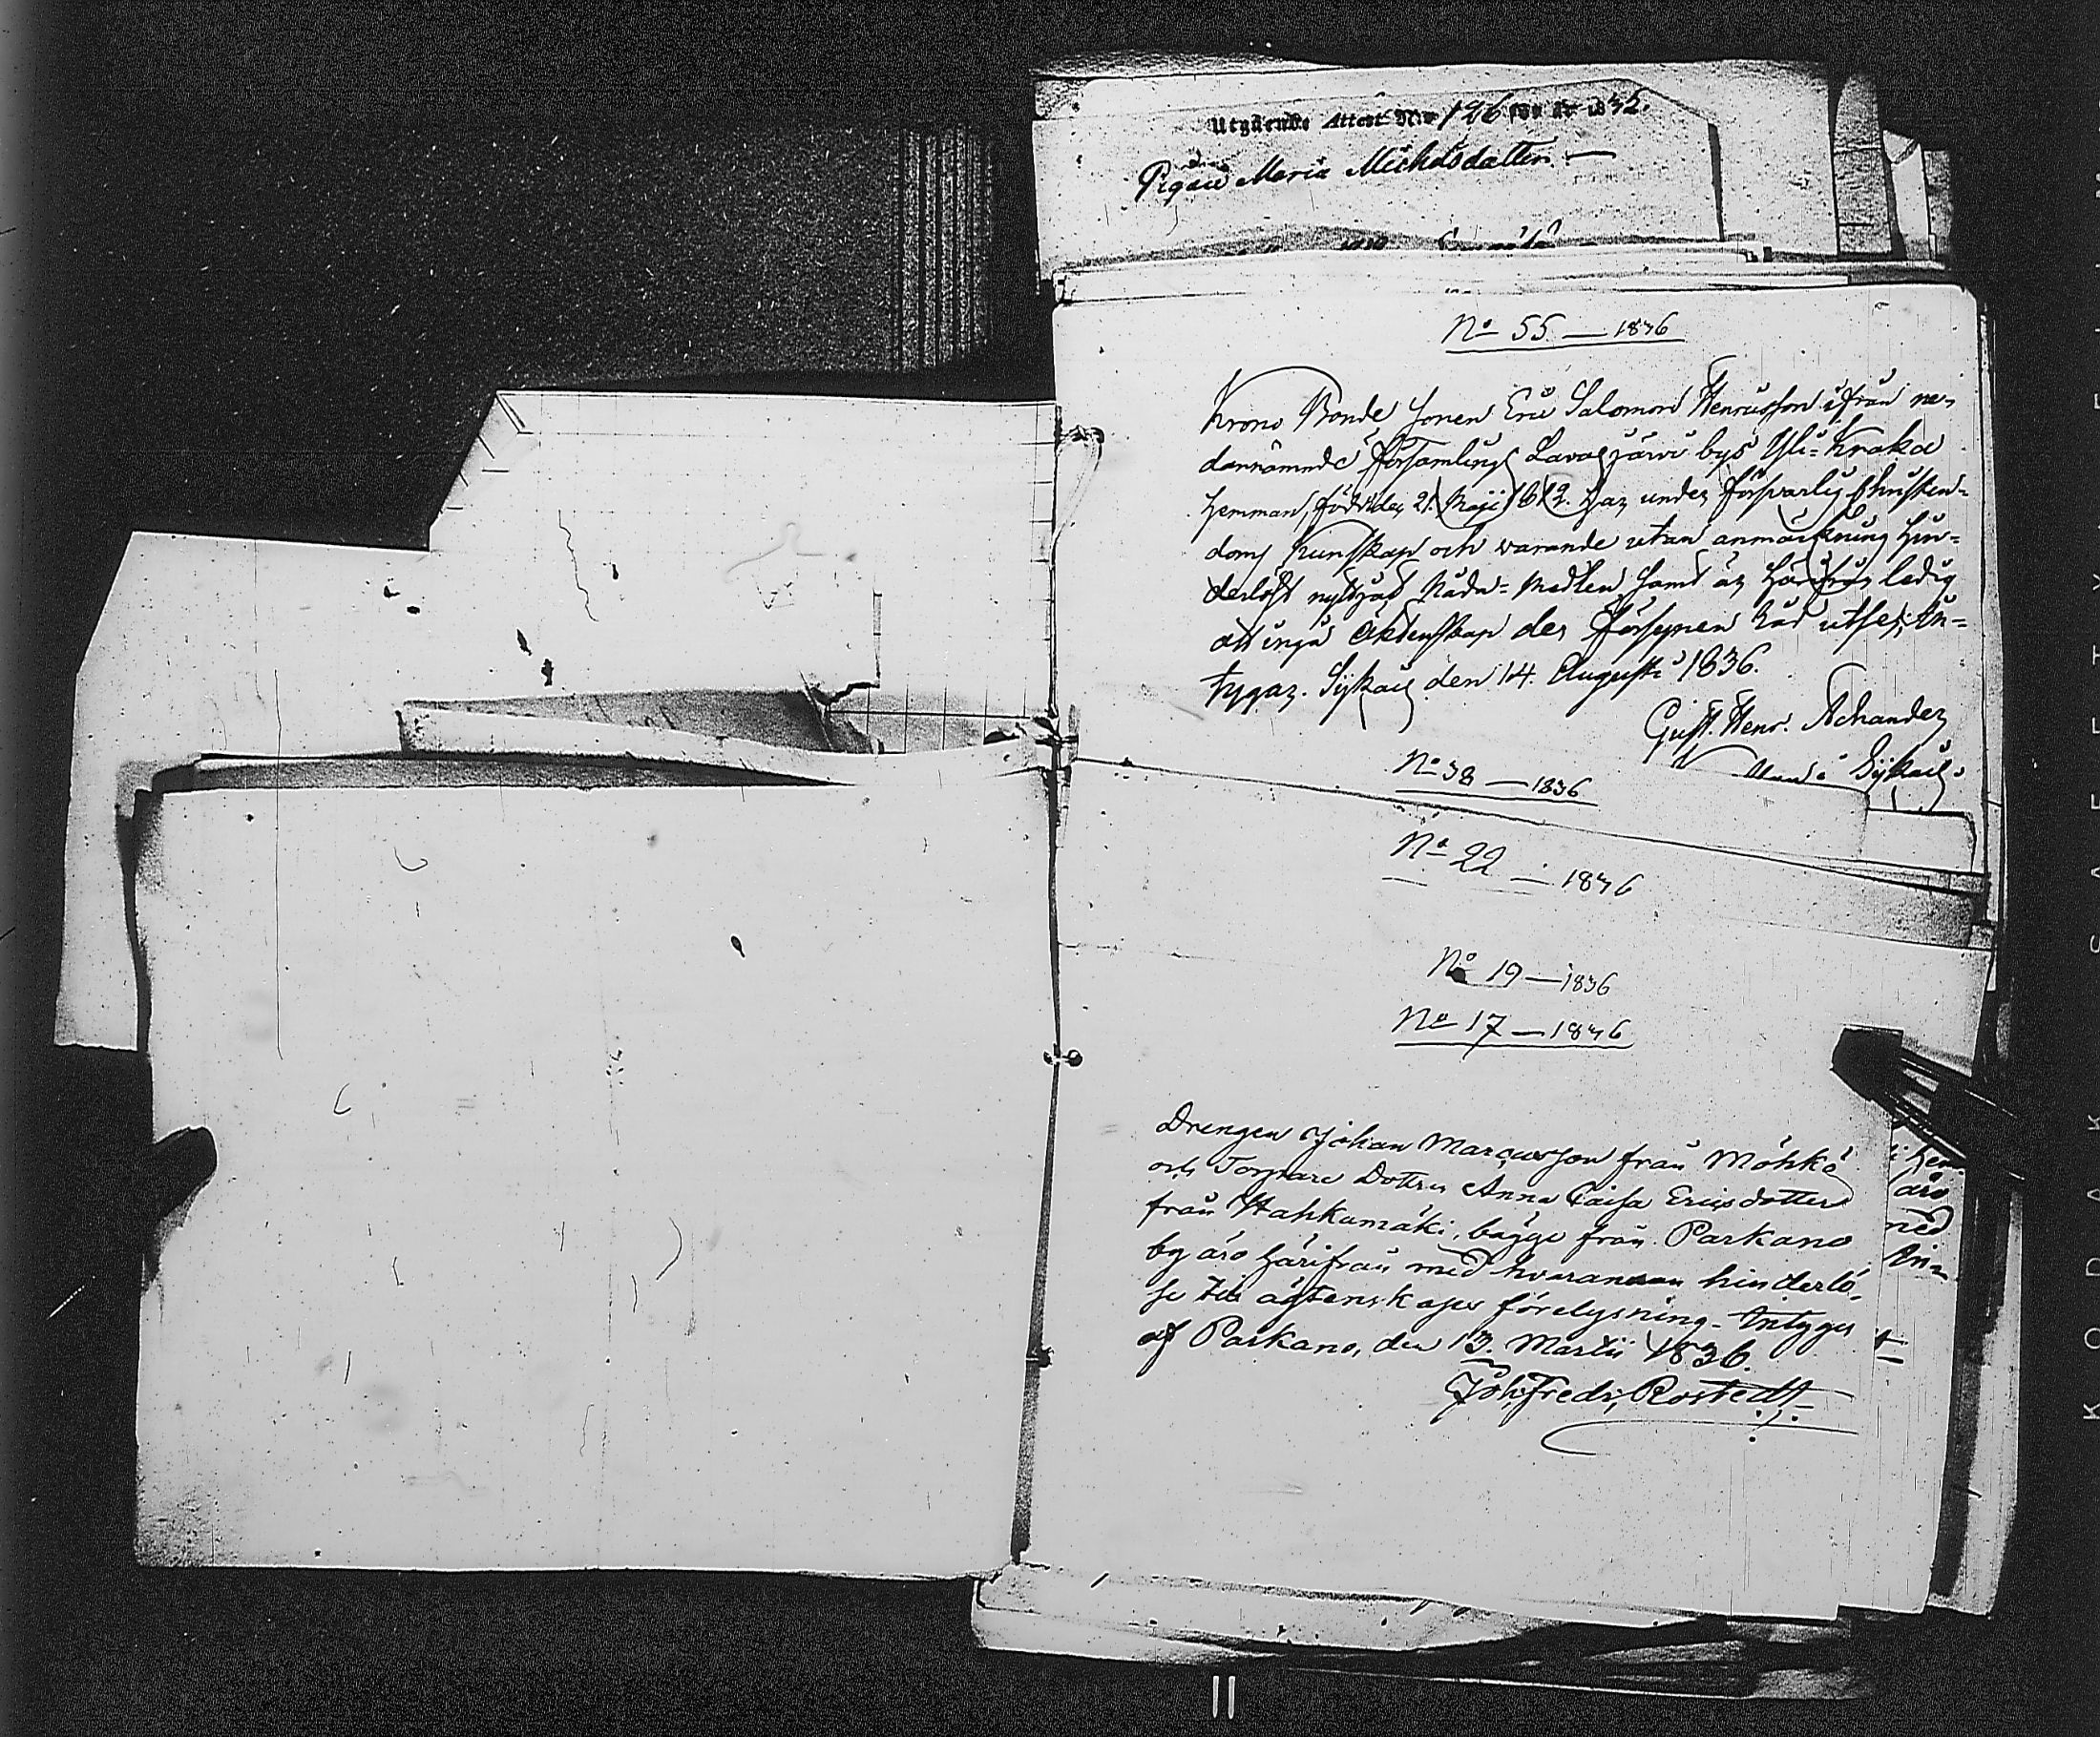 Utgående Attest N:o 126 för år 1835.
Pigan Maria Michelsdotter. —
N:o 55 — 1836
Krono Bonde Sonen Eric Salomon Henricsson ifrån ne-
dannämnde Församlings Lavasjärvi bys Yli-Kraka
hemman, född den 21. Maji 1812. har under försvarlig Christen-
doms kunskap och varande utan anmärkning hin-
derlöst nyttjat Nåda-Medlen samt är härifrån ledig
att ingå Äktenskap der Försynen täcks utse; In-
tygar. Sijkais den 14. Augusti 1836.
Gust. Henr. Achander
Sijkais
N:o 38 — 1836
N:o 22 — 1836
N:o 19 — 1836
N:o 17 — 1836
Drengen Johan Marcusson från Möhkö
och Torpare Dottren Anna Caisa Ericsdotter
från Hahkamäki, bägge från Parkano
by äro härifrån med hvarannan hinderlö-
se till ägtenskaps förelysning. Intygas
af Parkano, den 13. Martii 1836.
Joh: Fredr: Rostedt
äro
med
In-
KODAK SAFETY
11